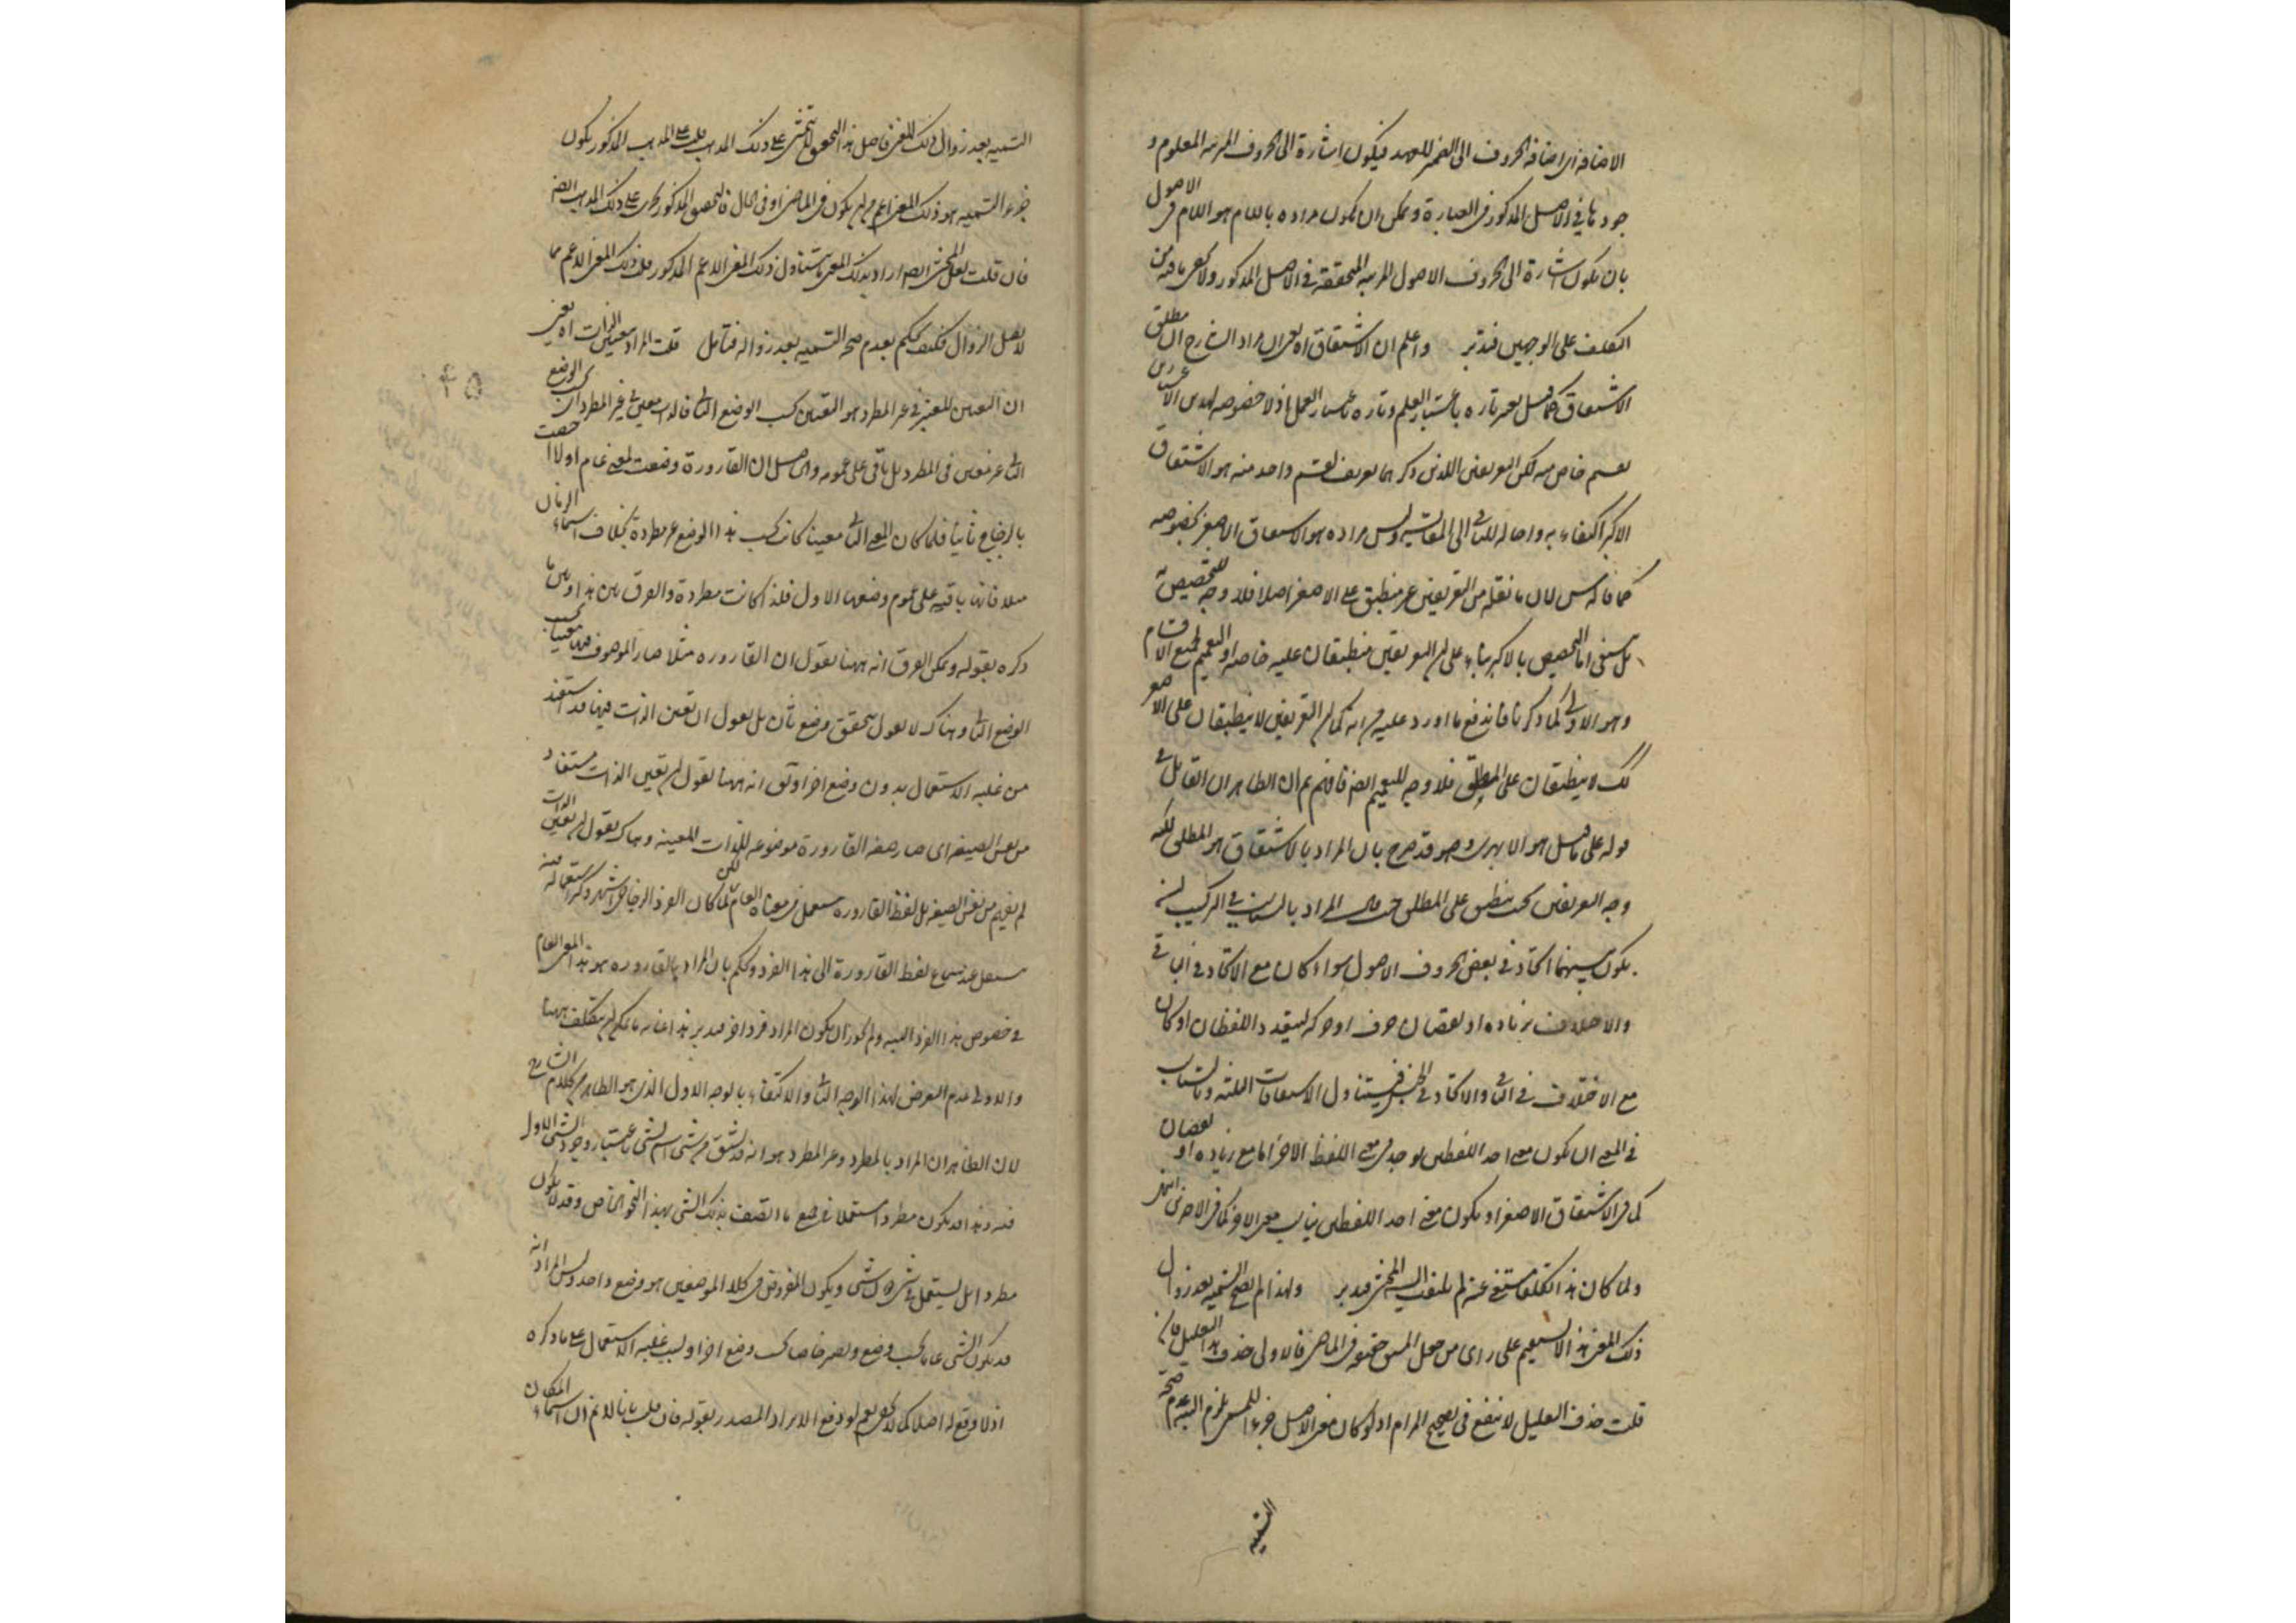 الاضافة اى اضافة الحروف الى الضمير للعهد فيكون اشارة الى الحروف المرتبة المعلوم و
جودها في الاصل المذكور فى العبارة ويمكن ان يكون مراده باللام هو اللام فى الاصول
بان يكون اشارة الى الحروف الاصول المرتبة المتحققة في الاصل المذكور ولا يخفى ما فيه من
التكلف على الوجهين فتدبر واعلم ان الاشتقاق اه يعنى ان مراد الشارح ان مطلق
الاشتقاق كما قيل يعتبر تارة باعتبار العلم وتارة باعتبار العمل اذ لا خصوصية لهذين الاعتبارين
بقسم خاص منه لكن التعريفين اللذين ذكرهما تعريف لقسم واحد منه هو الاشتقاق
الاكبر اكتفاء به واحالة للباقى الى المقايسة وليس مراده هو الاشتقاق الاصغر بخصوصه
كما قاله لان ما نقله من التعريفين غير منطبق على الاصغر اصلا فلا وجه للتخصيص به
بل ينبغى اما التخصيص بالاكبر بناء على ان التعريفين منطبقان عليه خاصة او التعميم لجميع الاقسام
وهو الاولى كما ذكرنا فاندفع ما اورد عليه من انه كما ان التعريفين لا ينطبقان على الاصغر
كك لا ينطبقان على المطلق فلا وجه للتعميم ايضا فافهم ثم ان الظاهر ان القائل فى
قوله على ما قيل هو الابهرى وهو قد صرح بان المراد بالاشتقاق هو المطلق لكنه
وجه التعريفين بحيث ينطبق على المطلق حيث قال المراد بالتناسب في التركيب ان
يكون بينهما اتحاد في بعض الحروف الاصول سواء كان مع الاتحاد في الباقى
والاختلاف بزيادة او نقصان حرف او حركة ليتعدد اللفظان او كان
مع الاختلاف في الباقى والاتحاد في المخرج فيتناول الاشتقاقات الثلثة وبالتناسب
في المعنى ان يكون معنى احد اللفظين يوجد فى معنى اللفظ الاخر اما مع زيادة او نقصان
كما فى الاشتقاق الاصغر او يكون معنى احد اللفظين يناسب معنى الاخر كما فى الاخرين انتهى
ولما كان هذا التكلف مستغنى عنه لم يلتفت اليه المحشى فتدبر ولهذا لم يصح التسمية بعد زوال
ذلك المعنى هذا لا يستقيم على راى من جعل المشتق حقيقة فى الماضى فالاولى حذف هذا التعليل فان
قلت حذف التعليل لا ينفع فى تصحيح المرام اذ لو كان معنى الاصل جزءا للمسمى يلزم البتة عدم صحة
التسمية
التسمية بعد زوال ذلك المعنى فاصل هذا التحقيق لا يتمشى على ذلك المذهب قلت على المذهب المذكور يكون
جزء التسمية هو ذلك المعنى اعم من ان يكون فى الماضى او فى الحال فالتحقيق المذكور يجرى على ذلك المذهب ايضا
فان قلت لعل المحشى ايضا اراد بذلك المعنى ما يتناول ذلك المعنى الاعم المذكور قلت ذلك المعنى الاعم مما
لا يقبل الزوال فكيف يحكم بعدم صحة التسمية بعد زواله فتامل قلت المراد بتعيين الذات اه يعنى
ان التعيين المعتبر في غير المطرد هو التعيين بحسب الوضع الثانى فالذات معين فى غير المطرد بحسب الوضع
الثانى غير معين فى المطرد بل باقى على عمومه والحاصل ان القارورة وضعت لمعنى عام اولا ثم خصت
بالزجاج ثانيا فلما كان المعنى الثانى معينا كانت بحسب هذا الوضع غير مطردة بخلاف اسماء الزمان
مثلا فانها باقية على عموم وضعها الاول فلذا كانت مطردة والفرق بين هذا وبين ما
ذكره بقوله ويمكن الفرق انه ههنا يقول ان القارورة مثلا صار الموصوف فيها معينا بحسب
الوضع الثانى وهناك لا يقول بتحقق وضع ثان بل يقول ان تعين الذات فيها قد استفيد
من غلبة الاستعمال بدون وضع اخر او نقول انه ههنا يقول ان تعين الذات مستفاد
من نفس الصيغة اى صار صيغة القارورة موضوعة للذات المعينة وهناك يقول ان تعين الذات
لم يفهم من نفس الصيغة بل لفظ القارورة يستعمل فى معناه العام لكن لما كان الفرد الزجاجى اشهر وكثر استعماله فيه
ينتقل عند سماع لفظ القارورة الى هذا الفرد ويحكم بان المراد بالقارورة هو هذا المعنى العام
في خصوص هذا الفرد البتة ولم يجوز ان يكون المراد فردا اخر فتدبر هذا غاية ما يمكن ان يتكلف ههنا
والاولى عدم التعرض لهذا الوجه الثانى والاكتفاء بالوجه الاول الذى هو الظاهر من كلام الشارح
لان الظاهر ان المراد بالمطرد وغير المطرد هو انه قد يشتق من شئ اسم لشئ باعتبار وجود الشئ الاول
فيه وهذا قد يكون مطردا يستعمل في جميع ما اتصف بذلك الشئ بهذا النحو الخاص وقد لا يكون
مطردا بل يستعمل في شئ دون شئ ويكون المفروض فى كلا الموضعين هو وضع واحد وليس المراد انه
قد يكون الشئ عاما بحسب وضع ويصير خاصا بحسب وضع اخر او بسبب غلبة الاستعمال على ما ذكره
اذ لا وقع له اصلا كما لا يخفى نعم لو دفع الايراد المصدر بقوله فان قلت بانا لا نم ان اسماء المكان
٤٥